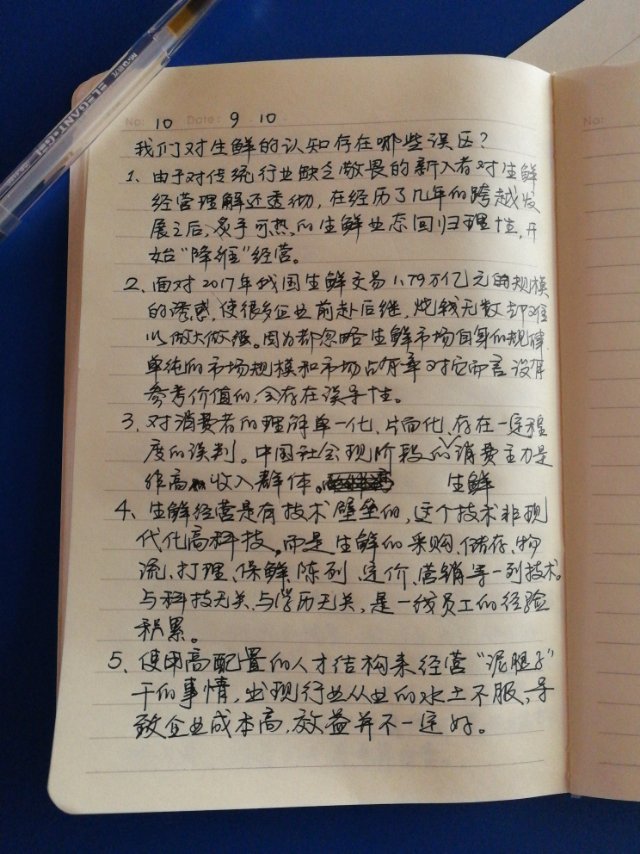 ELEGANT·GEL
No: 10 Date: 9.10
No:
我们对生鲜的认知存在哪些误区？
1、由于对传统行业缺乏敬畏的新入者对生鲜
经营理解还透彻，在经历了几年的跨越发
展之后，炙手可热的生鲜业态回归理性，开
始“降维”经营。
2、面对2017年我国生鲜交易1.79万亿元的规模
的诱惑，使很多企业前赴后继，烧钱无数却难
以做大做强。因为都忽略生鲜市场自身的规律，
单纯的市场规模和市场占有率对它而言没有
参考价值的，会存在误导性。
3、对消费者的理解单一化，片面化，存在一定程
度的误判。中国社会现阶段的生鲜消费主力是
非高收入群体。
4、生鲜经营是有技术壁垒的，这个技术非现
代化高科技。而是生鲜的采购、储存、物
流、打理、保鲜、陈列、定价、营销等一列技术。
与科技无关、与学历无关，是一线员工的经验
积累。
5、使用高配置的人才结构来经营“泥腿子”
干的事情，出现行业从业的水土不服，导
致企业成本高，效益并不一定好。